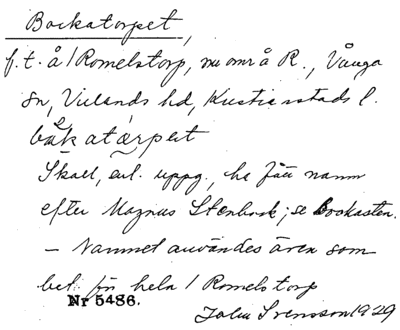 Bockatorpet,
f.t. å 1 Romelstorp, nu omr å R., Vånga
sn, Villands hd, Kristianstads l.
båkatärpət
Skall, enl. uppg, ha fått namn
efter Magnus Stenbock; se Bockasten.
– Namnet användes även som
bet. för hela 1 Romelstorp
Nr 5486.
John Svensson 1929